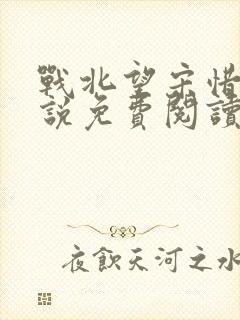 戰北望宋惜
說免費閱讀
夜飲天河之水